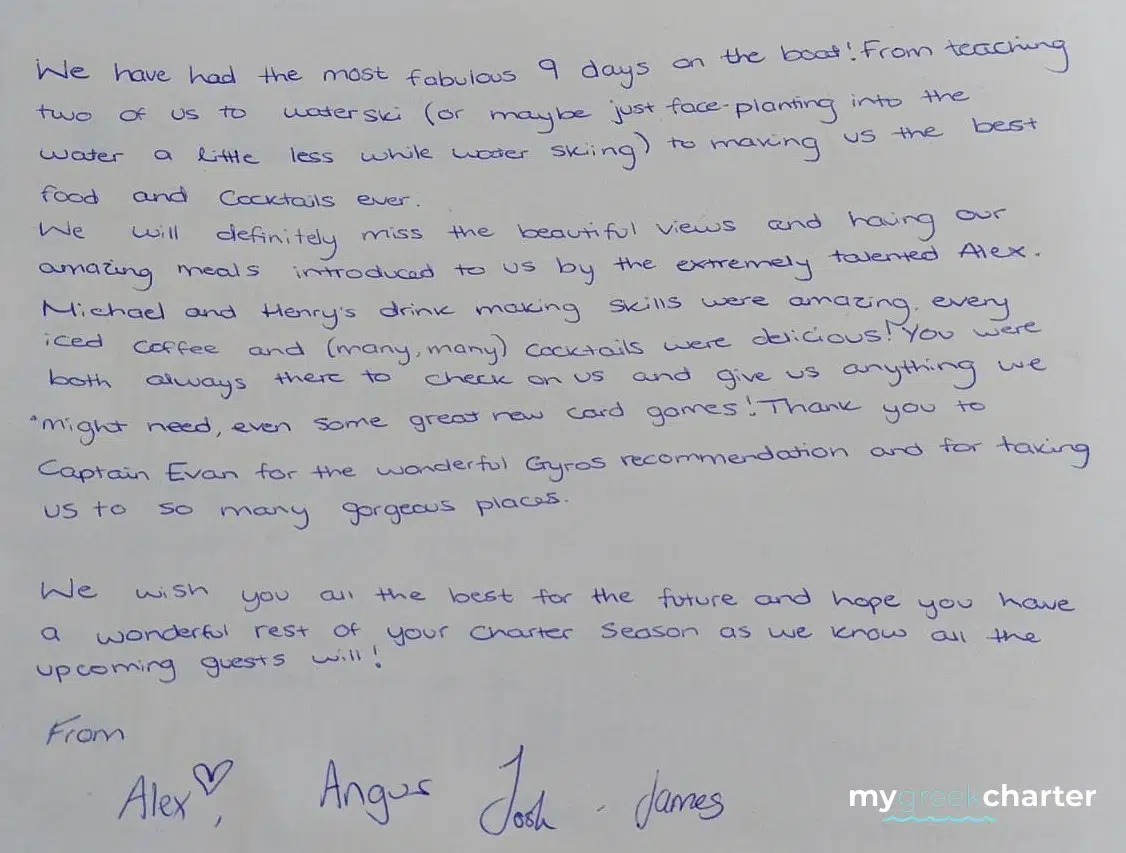 We have had the most fabulous 9 days on the boat! From teaching
two of us to waterski (or maybe just face-planting into the
water a little less while water skiing) to making us the best
food and Cocktails ever.
We will definitely miss the beautiful views and having our
amazing meals introduced to us by the extremely talented Alex.
Michael and Henry's drink making skills were amazing, every
iced coffee and (many, many) cocktails were delicious! You were
both always there to check on us and give us anything we
might need, even some great new card games! Thank you to
Captain Evan for the wonderful Gyros recommendation and for taking
us to so many gorgeous places.
We wish you all the best for the future and hope you have
a wonderful rest of your charter season as we know all the
upcoming guests will!
From
Alex, Angus Josh . James
mygreekcharter